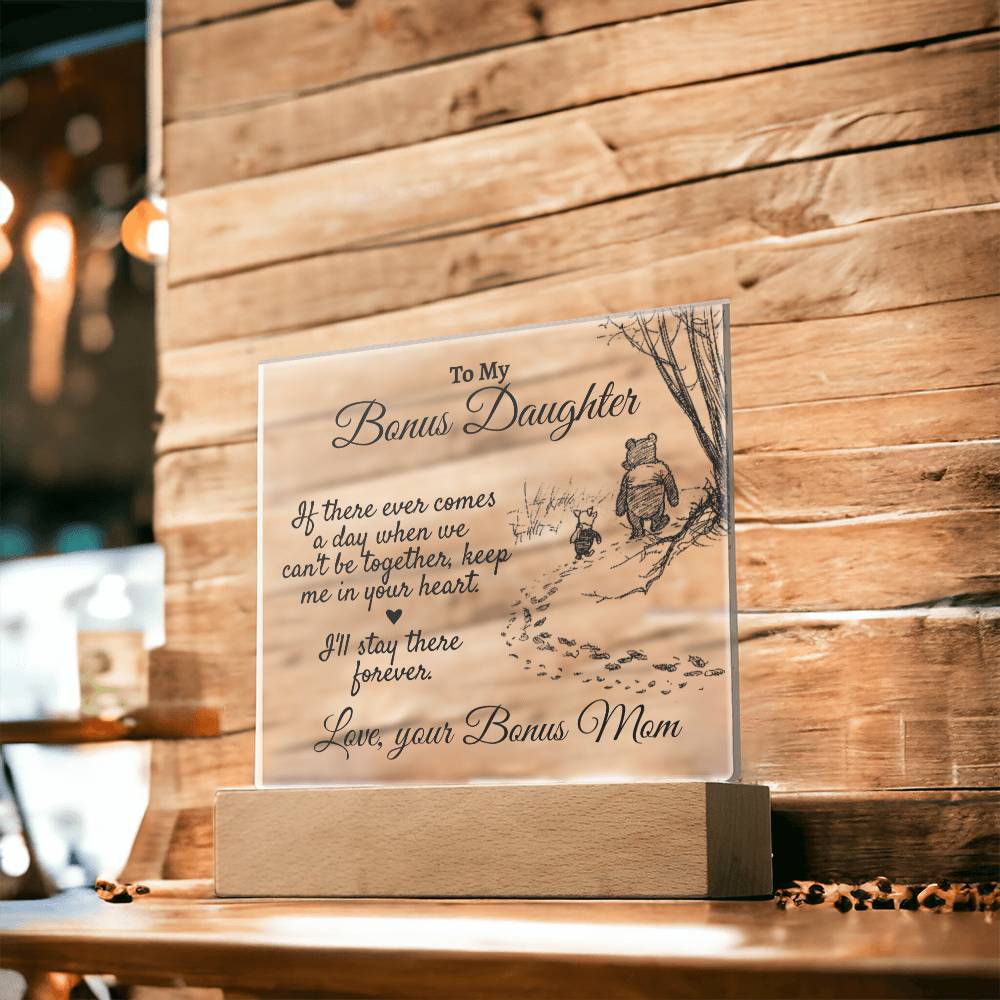 To My
Bonus Daughter
If there ever comes
a day when we
can't be together, keep
me in your heart.
I'll stay there
forever.
Love, your Bonus Mom